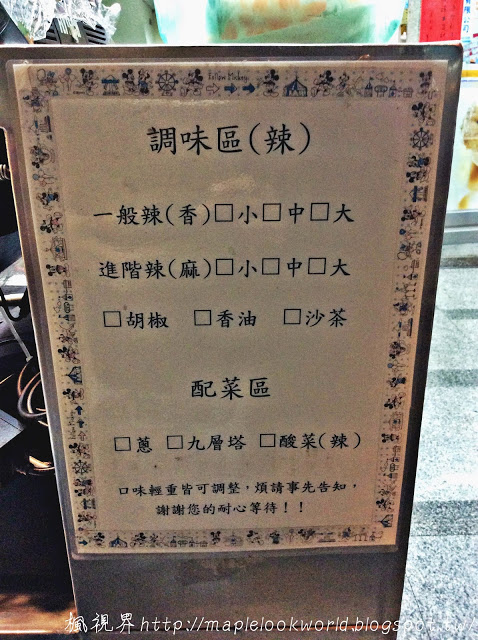 Follow Mickey
調味區(辣)
一般辣(香)□小□中□大
進階辣(麻)□小□中□大
□胡椒 □香油 □沙茶
配菜區
□蔥 □九層塔 □酸菜(辣)
口味輕重皆可調整，煩請事先告知，
謝謝您的耐心等待！！
楓視界http://maplelookworld.blogspot.tw/